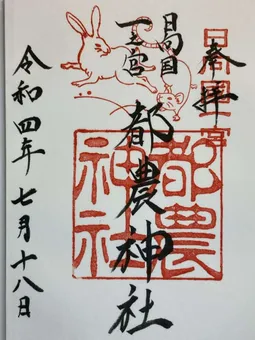 奉拝
日向国一之宮
日向国
一之宮
都農神社
都農
神社
令和四年七月十八日